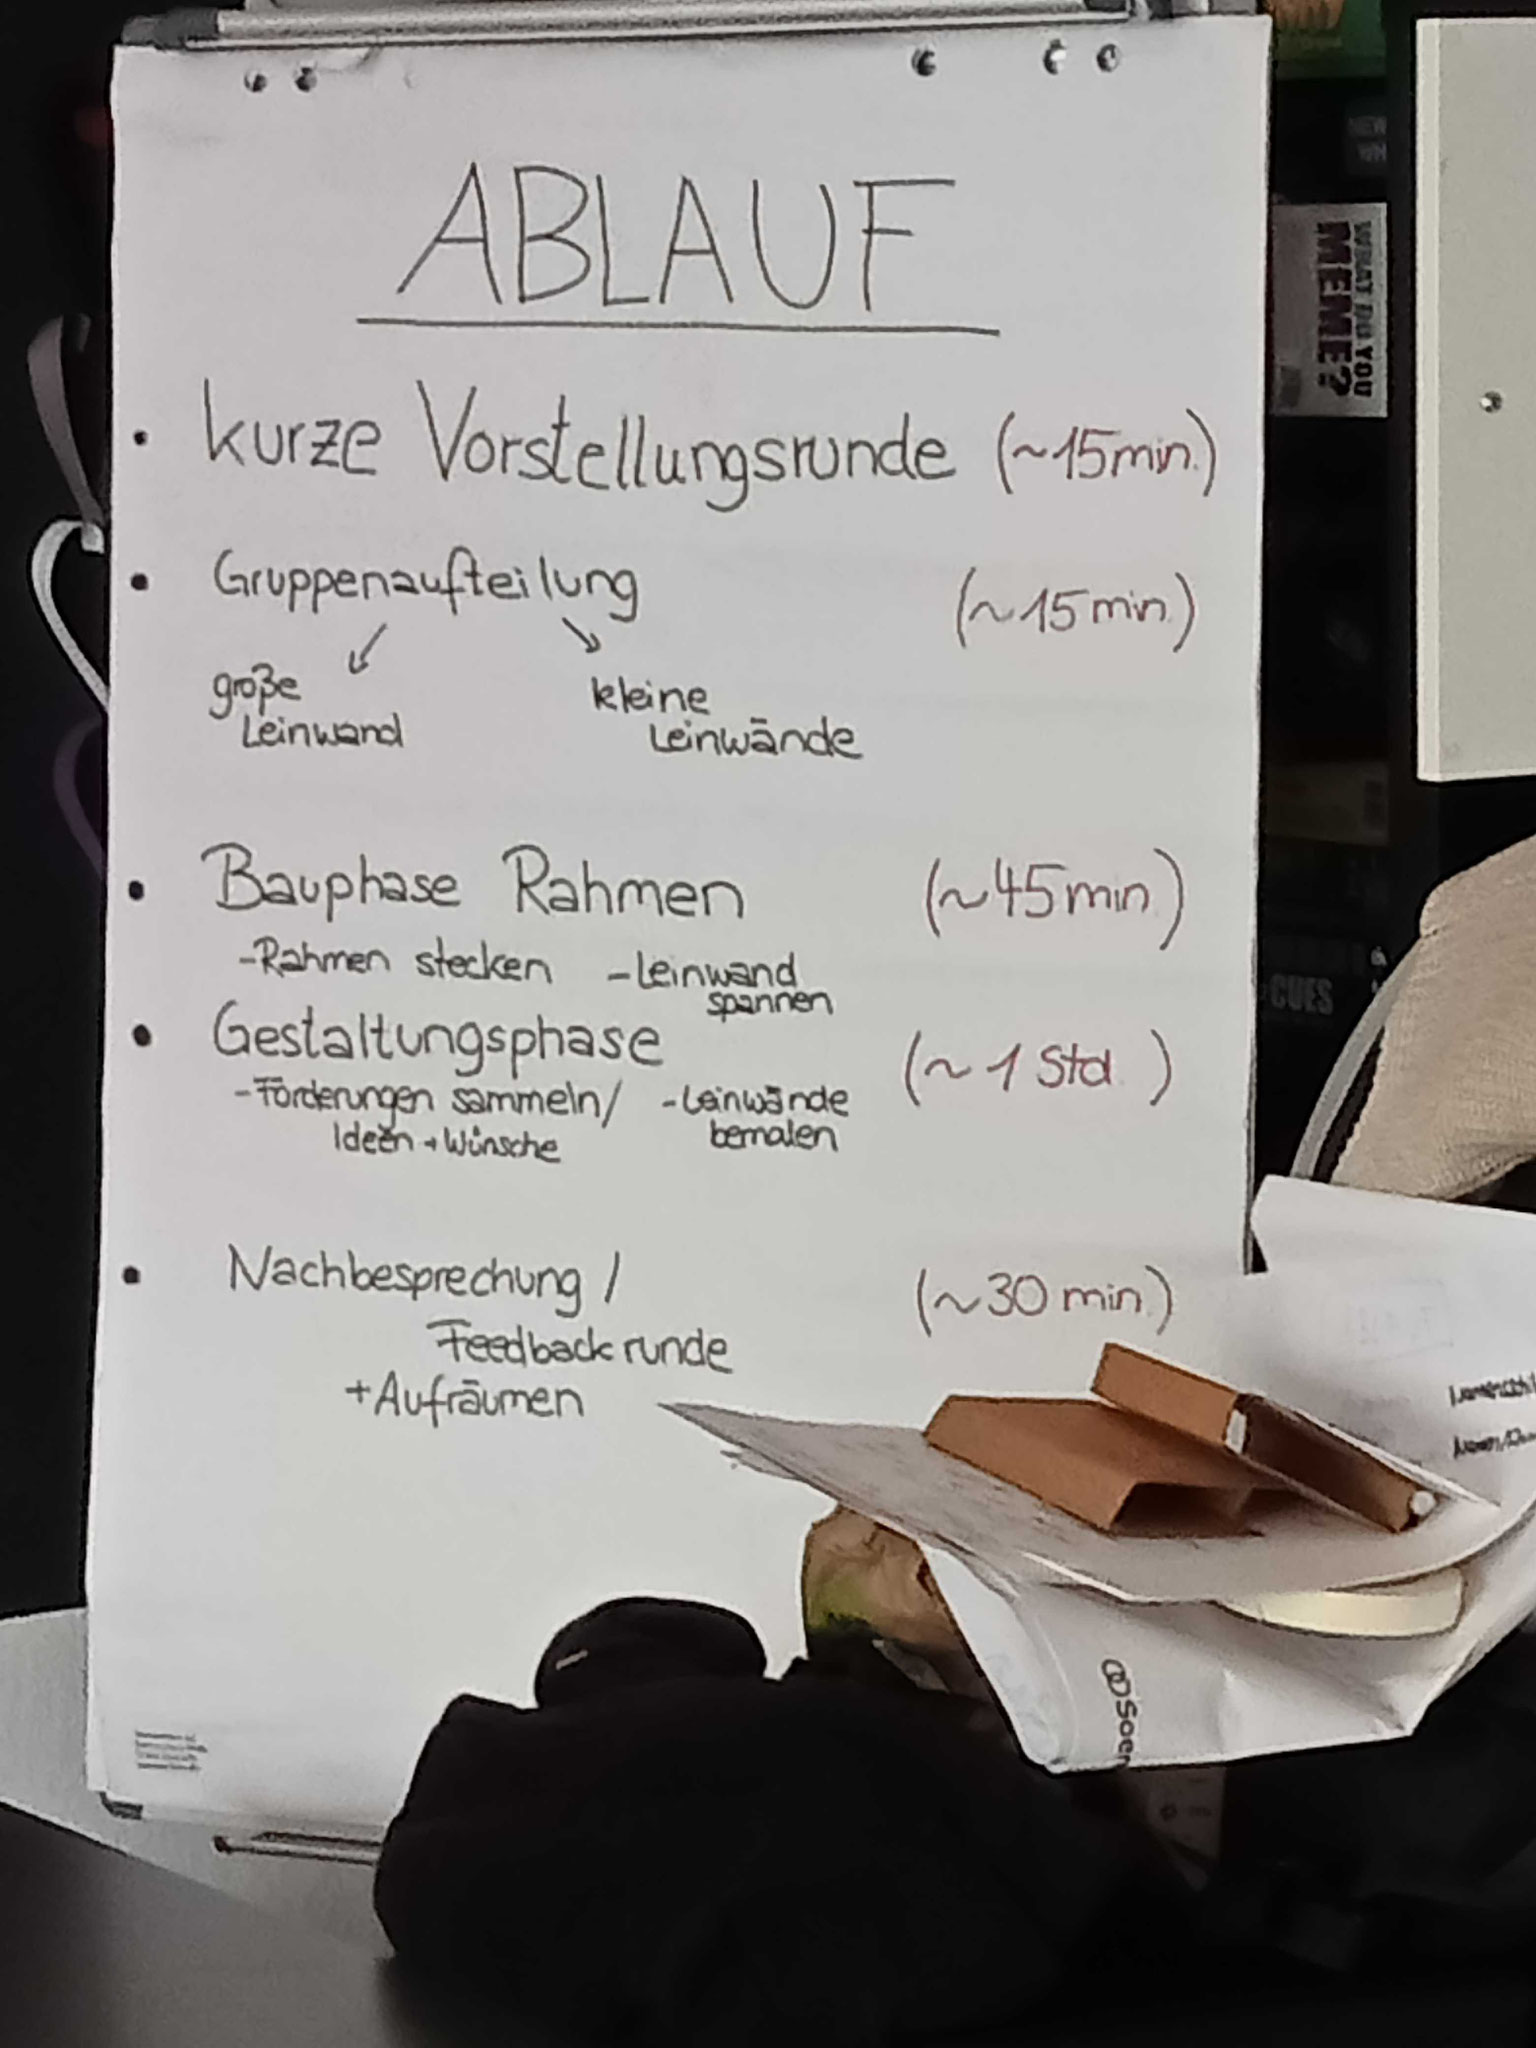 ABLAUF
• kurze Vorstellungsrunde (~15min.)
• Gruppenaufteilung (~15min.)
↙ ↘
große kleine
Leinwand Leinwände
• Bauphase Rahmen (~45min)
-Rahmen stecken -Leinwand
spannen
• Gestaltungsphase (~1 Std.)
-Forderungen sammeln/ -Leinwände
Ideen + Wünsche bemalen
• Nachbesprechung / (~30 min.)
Feedbackrunde
+Aufräumen
WHAT DO YOU
MEME?
NEW
CUES
Soen